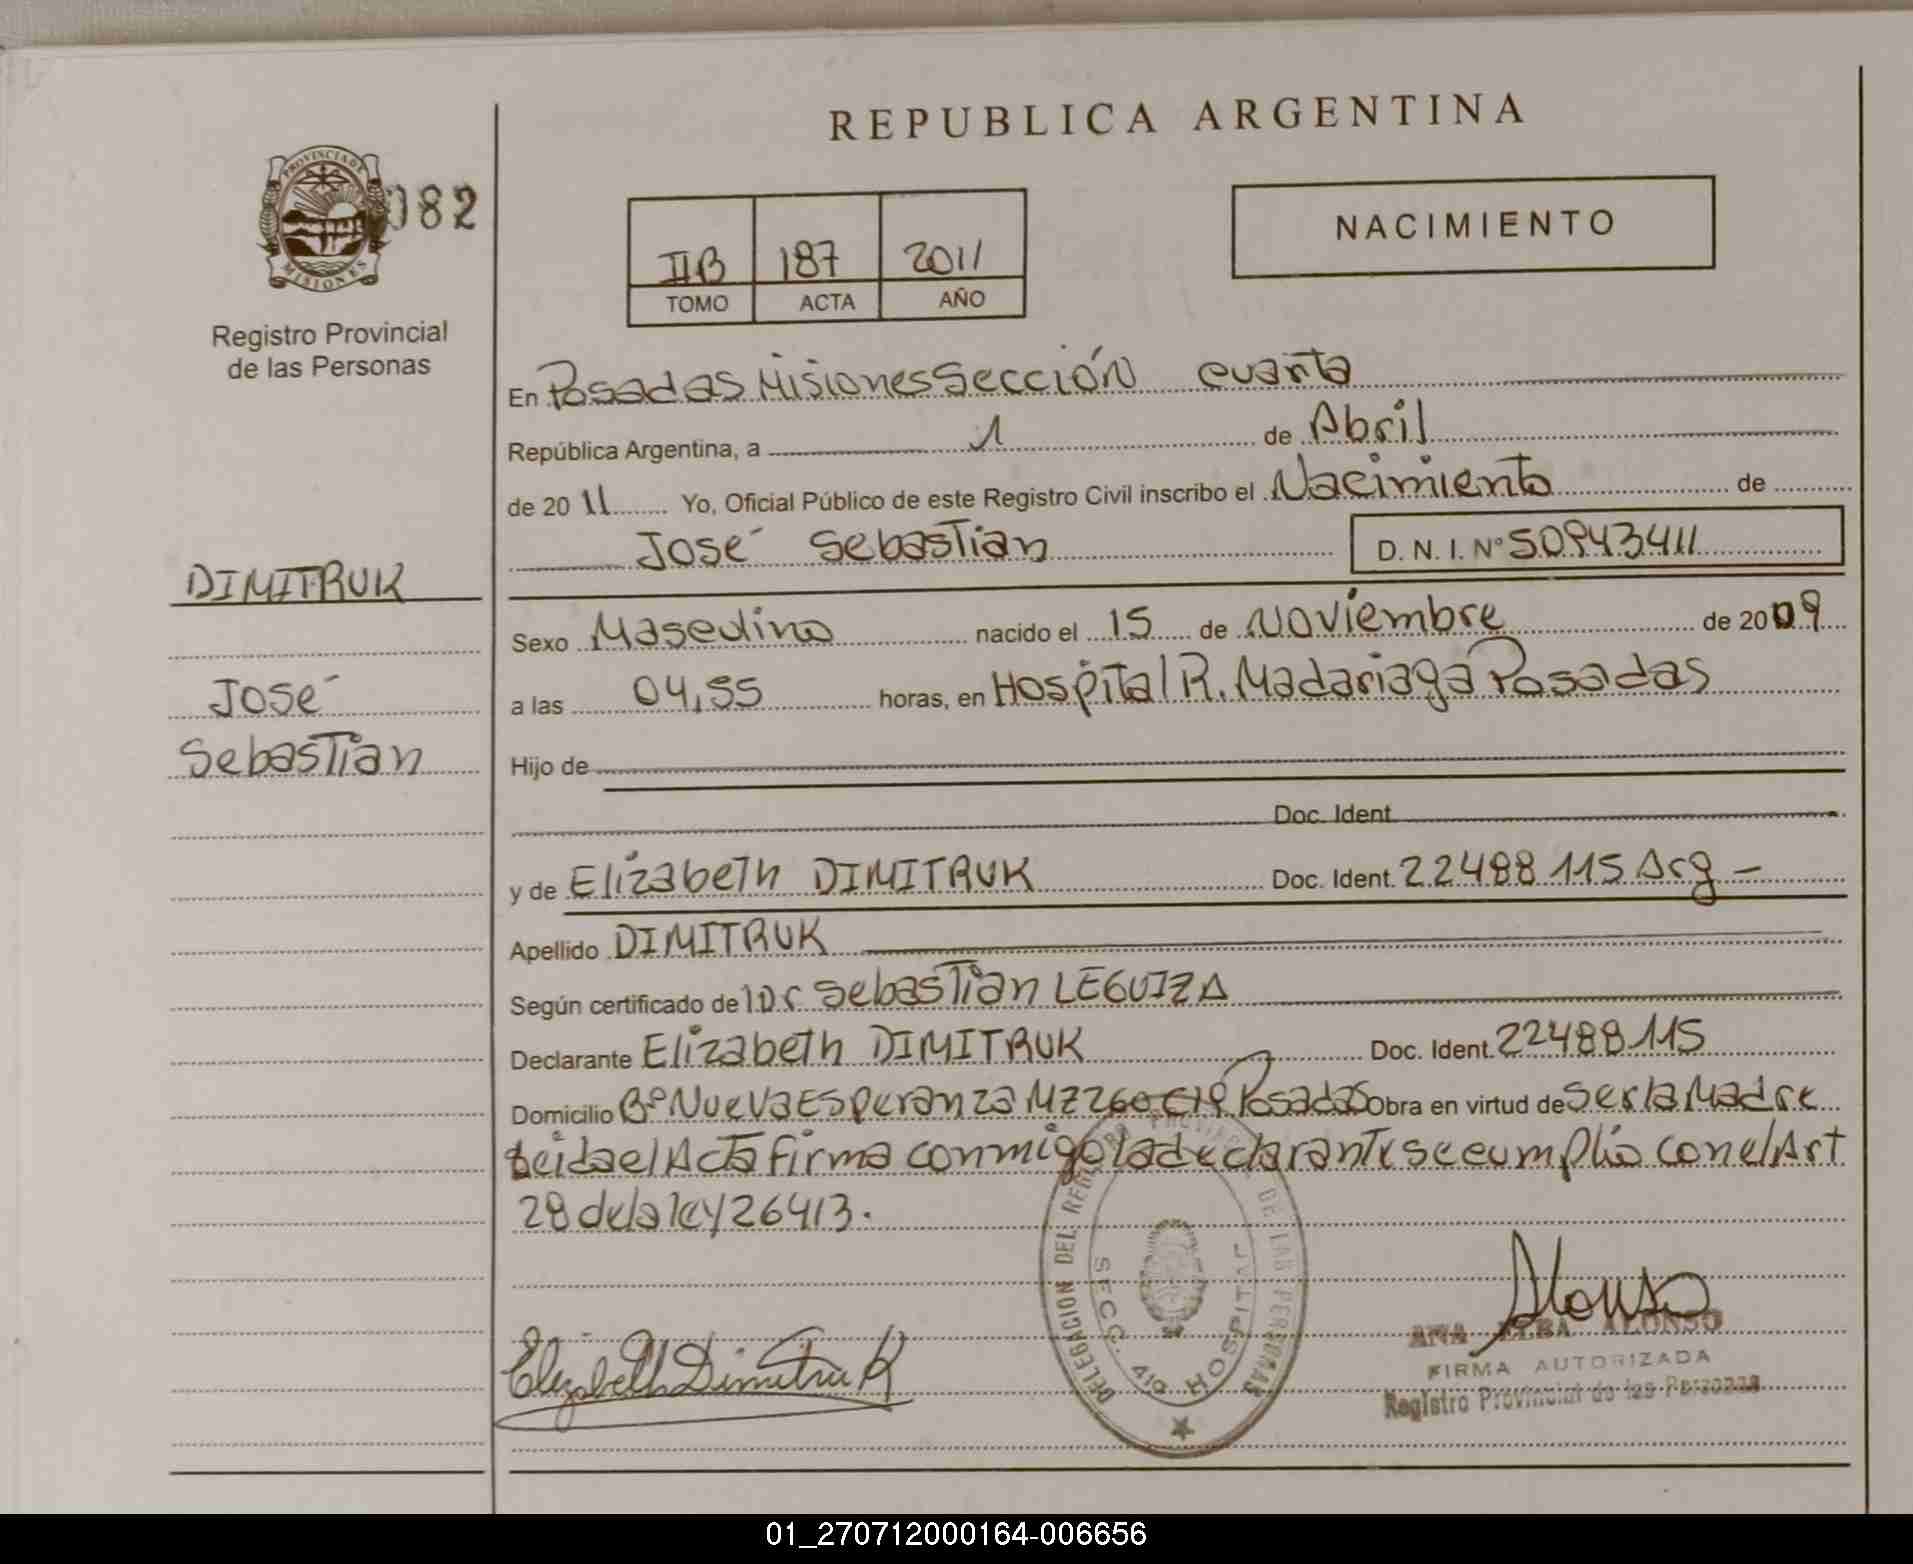 REPUBLICA ARGENTINA
PROVINCIA DE
MISIONES
082
Registro Provincial
de las Personas
IIB 187 2011
TOMO ACTA AÑO
NACIMIENTO
En Posadas Misiones Sección cuarta
República Argentina, a 1 de Abril
de 2011 Yo, Oficial Público de este Registro Civil inscribo el Nacimiento de
José Sebastian D. N. I. N° 50943411
DIMITRUK
José
Sebastian
Sexo Masculino nacido el 15 de Noviembre de 2009
a las 04,55 horas, en Hospital R. Madariaga Posadas
Hijo de
Doc. Ident.
y de Elizabeth DIMITRUK Doc. Ident. 22488115 Arg -
Apellido DIMITRUK
Según certificado de Dr Sebastian LEGUIZA
Declarante Elizabeth DIMITRUK Doc. Ident. 22488115
Domicilio B° Nueva Esperanza MZ 260 C19 Posadas Obra en virtud de ser la Madre
Leida el Acta firma conmigo la declarante se cumplio con el Art
28 de la ley 26413.
DELEGACION DEL REGISTRO PROVINCIAL DE LAS PERSONAS
SECC. 4ta HOSPITAL
Elizabeth Dimitruk
Alonso
ANA ELBA ALONSO
FIRMA AUTORIZADA
Registro Provincial de las Personas
01_270712000164-006656